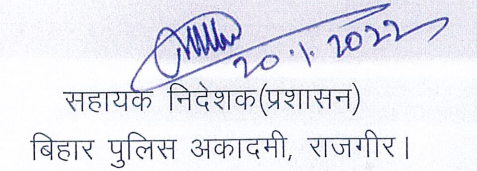 20.1.2022
सहायक निदेशक(प्रशासन)
बिहार पुलिस अकादमी, राजगीर।